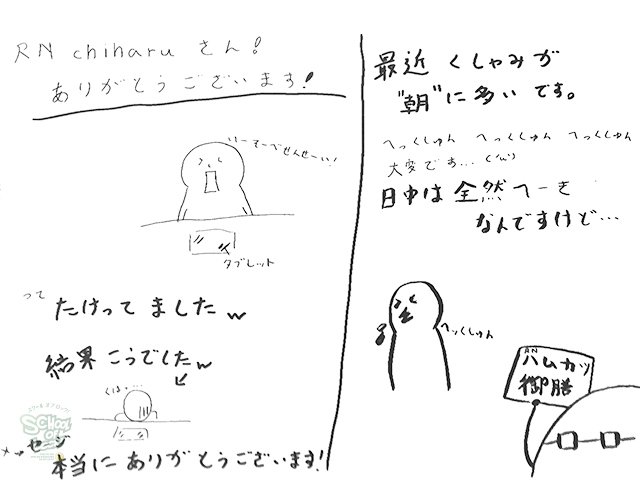 RN chiharu さん!
ありがとうございます!
いーそーべせんせーい!
タブレット
って
たけってましたw
結果こうでしたw
くは・・・
メッセージ
本当にありがとうございます!
最近くしゃみが
"朝"に多いです。
へっくしゅん へっくしゅん へっくしゅん
大変です…('ω')
日中は全然へーき
なんですけど…
へっくしゅん
RN
ハムカツ
御膳